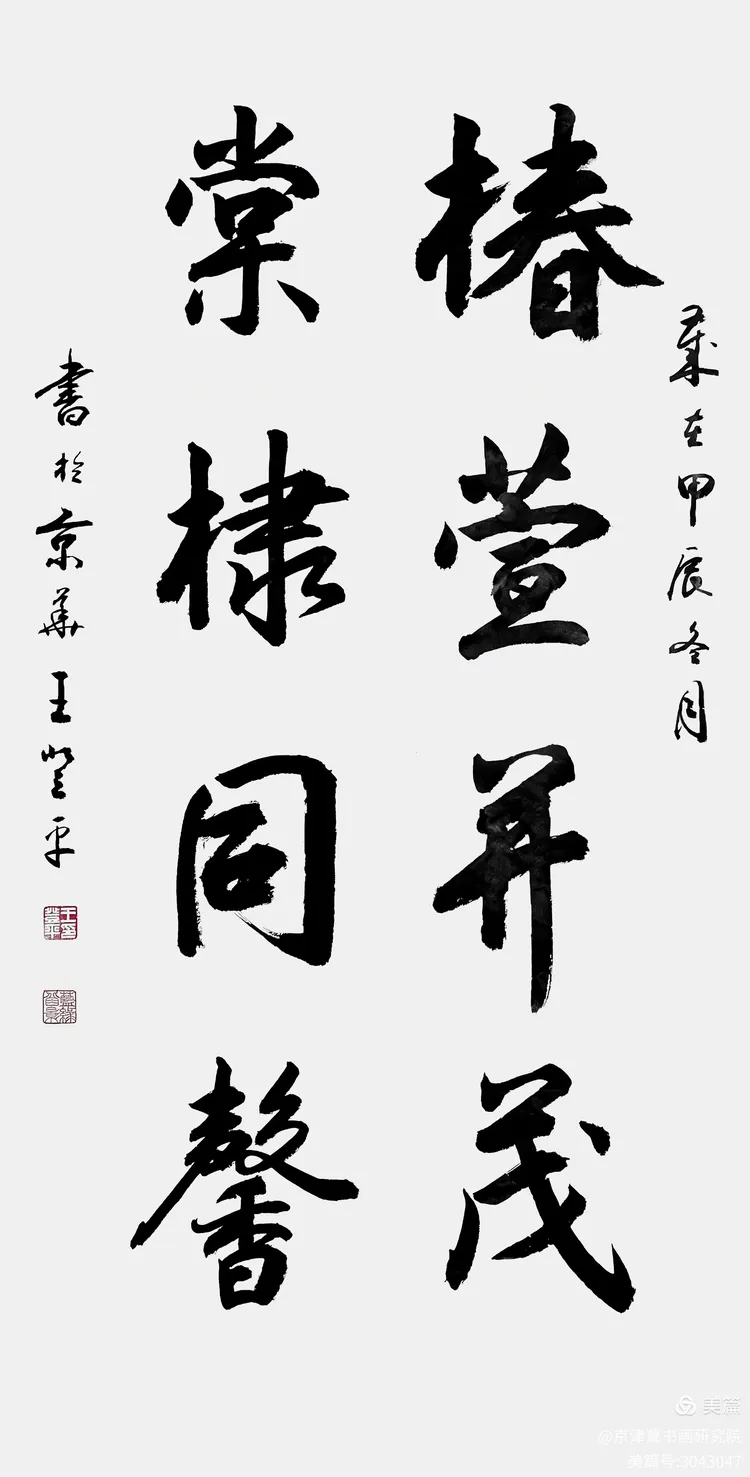 歲在甲辰冬月
椿萱并茂
棠棣同馨
書於京華王登平
王登平印
美篇
@京津冀书画研究院
美篇号:3043047